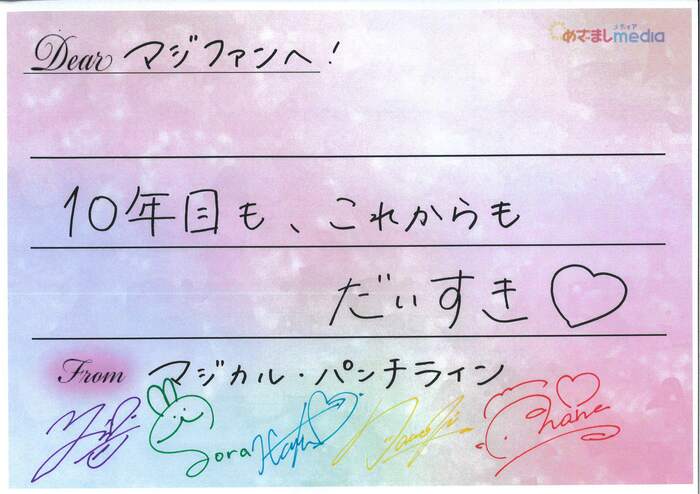 Dear マジファンへ!
メディア
めざましmedia
10年目も、これからも
だいすき♡
From マジカル・パンチライン
Sora